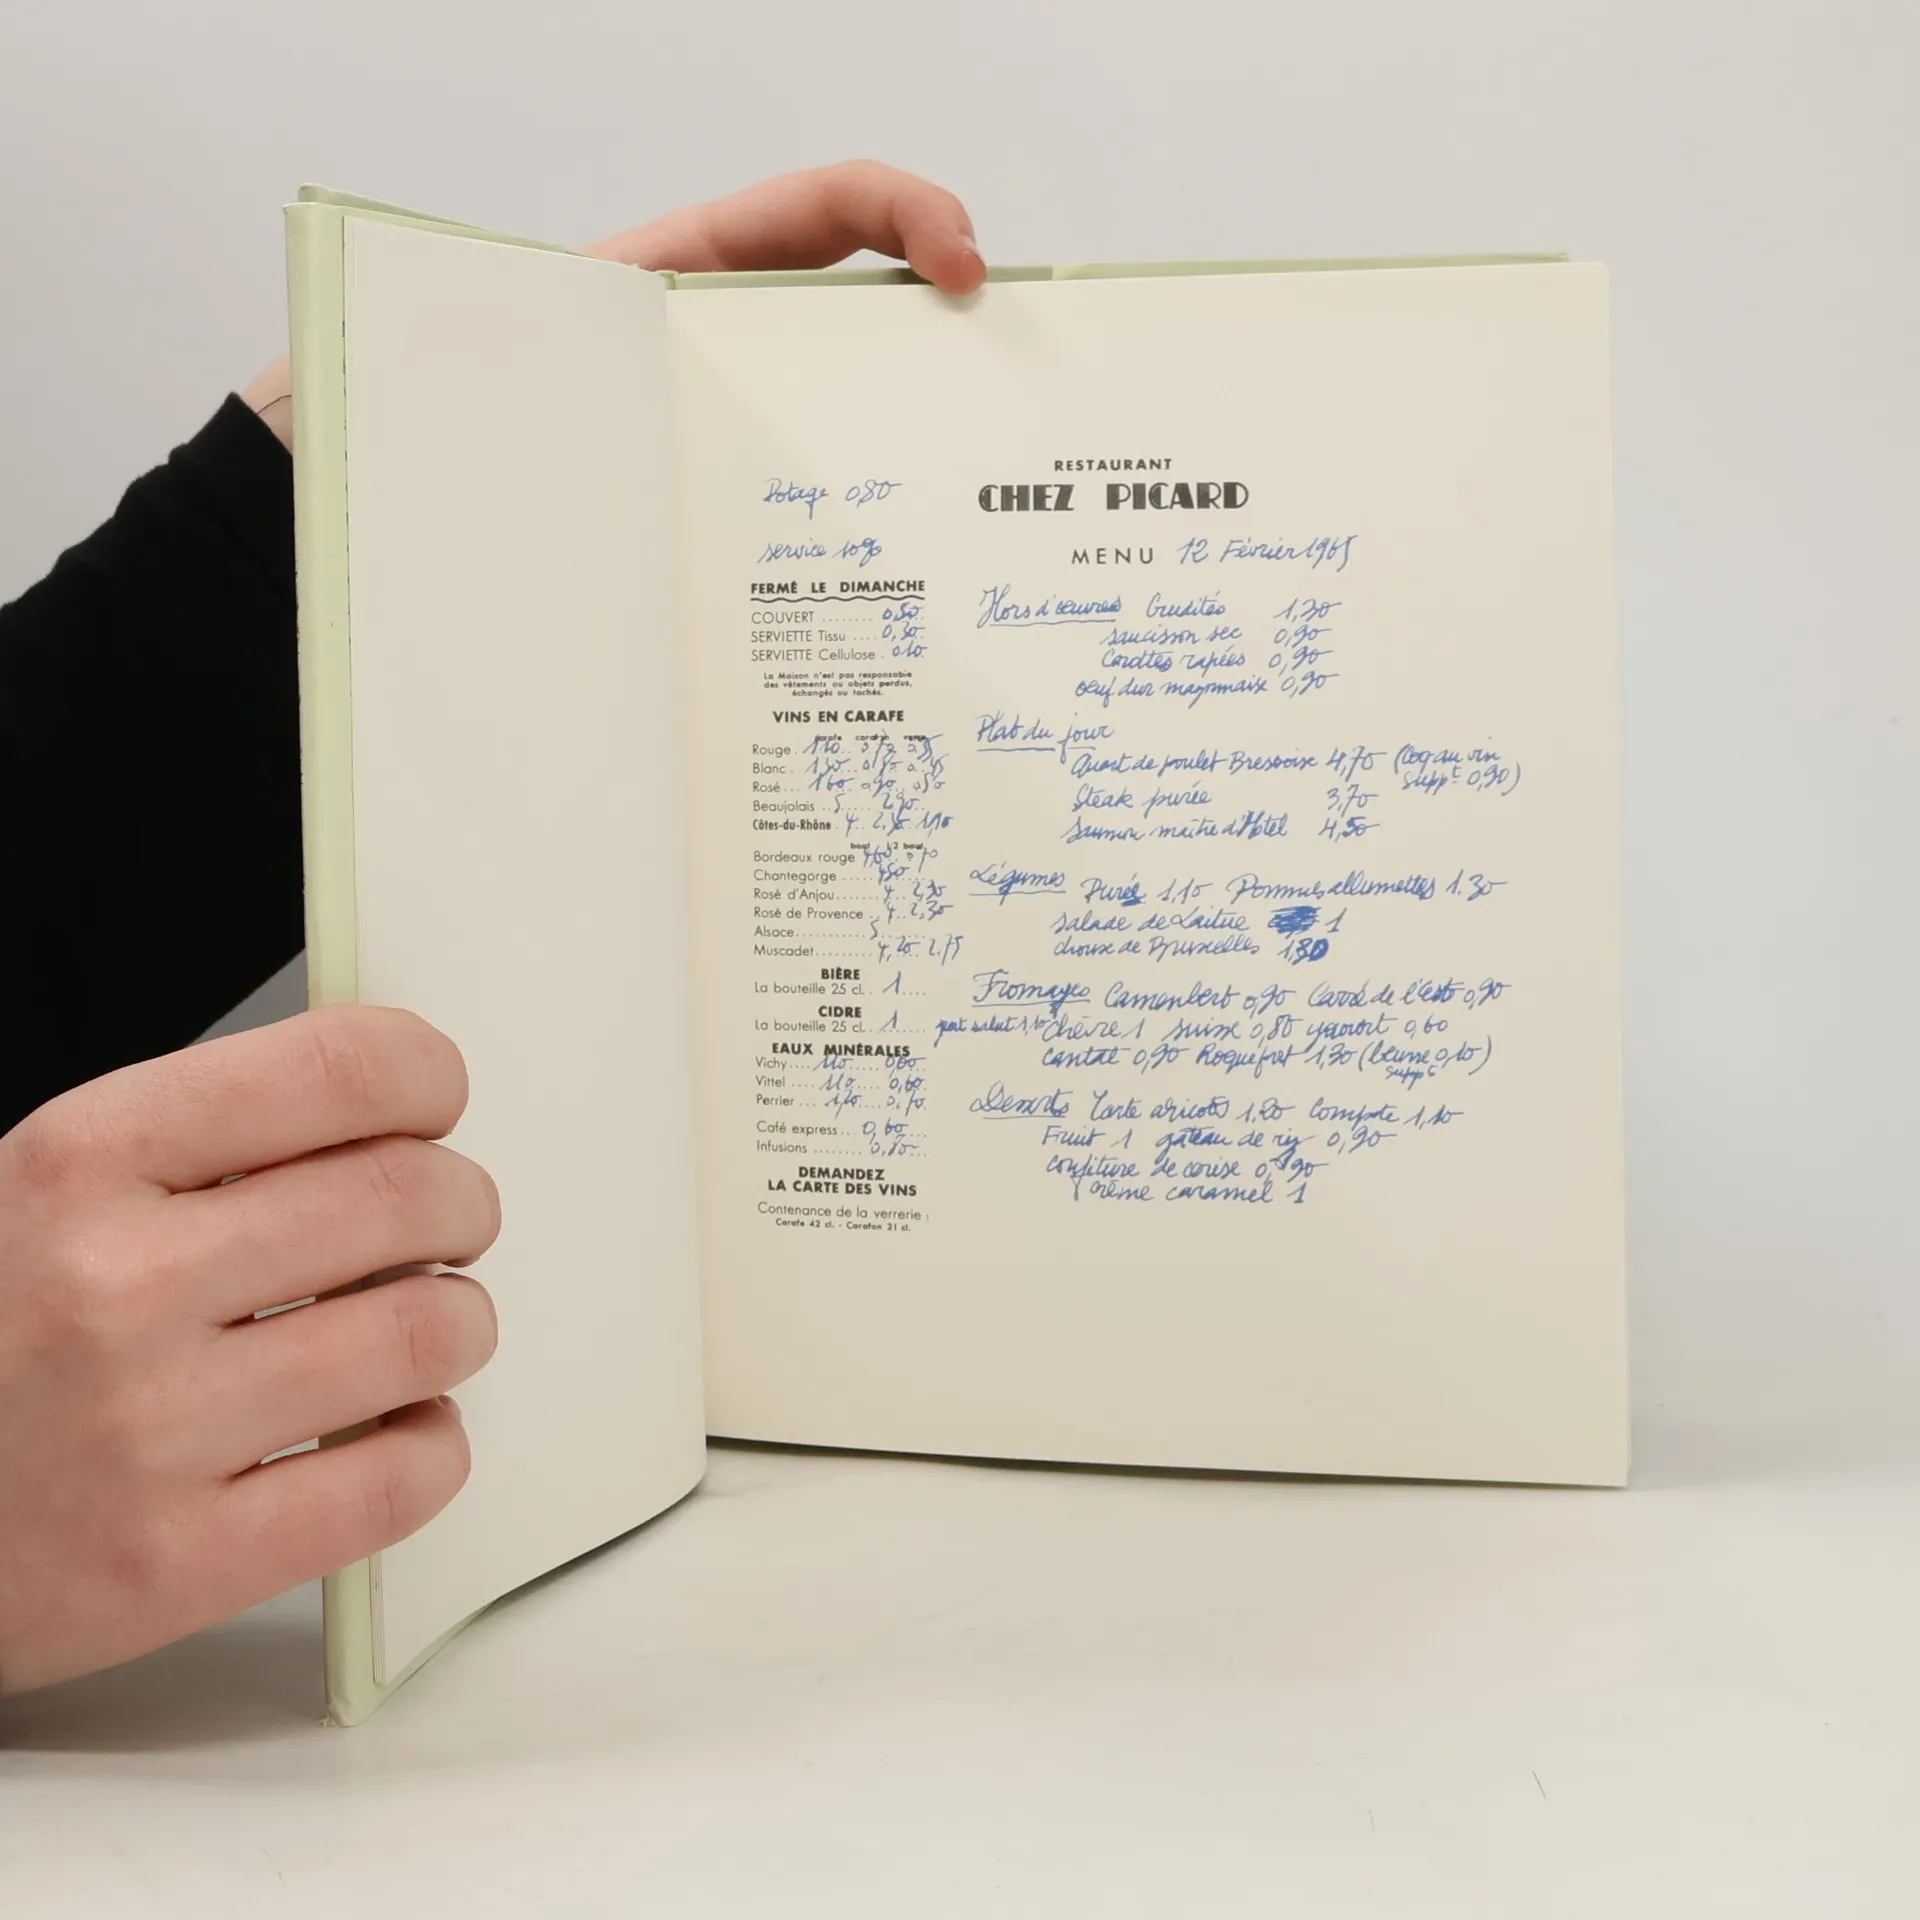 RESTAURANT
CHEZ PICARD
MENU 12 Février 1965
Potage 0,80
service 10%
FERMÉ LE DIMANCHE
COUVERT ........ 0,50
SERVIETTE Tissu .... 0,30
SERVIETTE Cellulose . 0,10
La Maison n'est pas responsable
des vêtements ou objets perdus,
échangés ou tachés.
VINS EN CARAFE
carafe carafon verre
Rouge . 1,10
Blanc . 1,30
Rosé ... 1,60 0,90 0,50
Beaujolais .. 5 2,90
Côtes-du-Rhône . 4 2,30 1,10
bout 1/2 bout
Bordeaux rouge
Chantegorge ..... 4,50
Rosé d'Anjou ...... 4 2,30
Rosé de Provence .. 4 2,30
Alsace ........... 5
Muscadet ......... 4,20 2.75
BIÈRE
La bouteille 25 cl. . 1
CIDRE
La bouteille 25 cl. . 1
EAUX MINÉRALES
Vichy .... 1,10 0,60
Vittel .... 1,10 0,60
Perrier ... 1,20 0,70
Café express ... 0,60
Infusions ........ 0,80
DEMANDEZ
LA CARTE DES VINS
Contenance de la verrerie :
Carafe 42 cl. - Carafon 21 cl.
Hors d'œuvres Crudités 1,30
saucisson sec 0,90
Carottes rapées 0,90
oeuf dur mayonnaise 0,90
Plat du jour
Quart de poulet Bressoise 4,70 (Coq au vin
suppt 0,90)
Steak purée 3,70
Saumon maître d'Hotel 4,50
Légumes Purée 1,10 Pommes allumettes 1.30
salade de Laitue 1
choux de Bruxelles 1,30
Fromages Camembert 0,90 Carré de l'est 0,90
port salut 1,10 Chèvre 1 suisse 0,80 yaourt 0,60
cantal 0,90 Roquefort 1,30 (beurre 0,10)
suppt
Desserts Tarte abricots 1,20 Compote 1,10
Fruit 1 gateau de riz 0,90
confiture de cerise 0,90
crème caramel 1